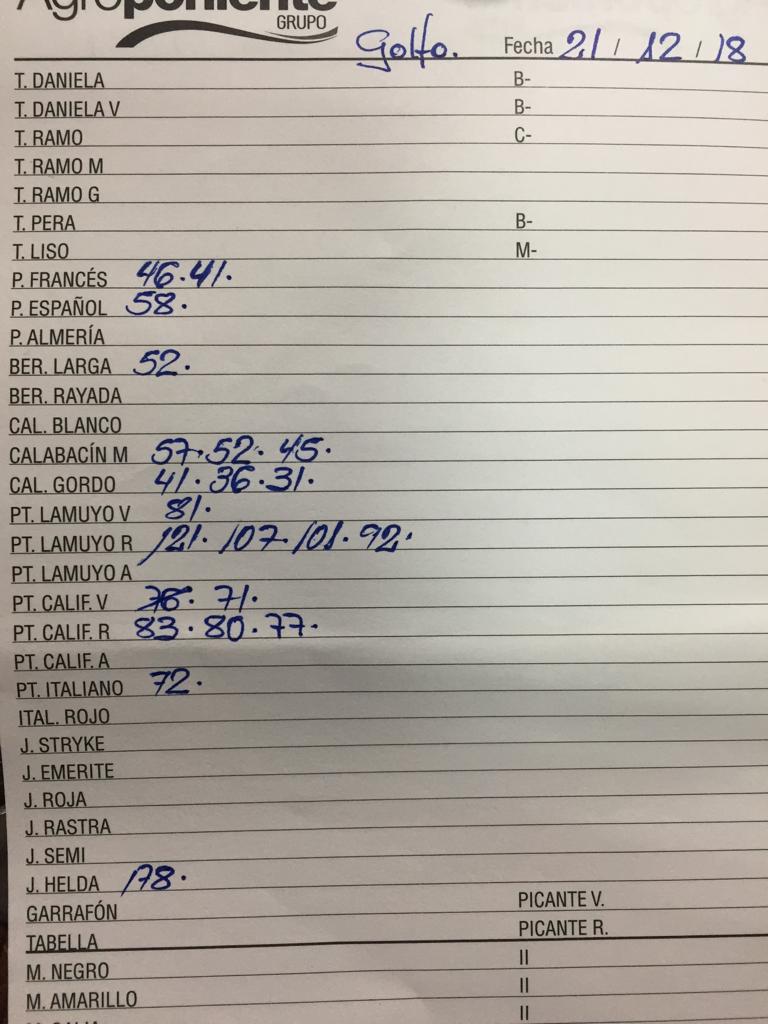 Agroponiente
GRUPO
Golfo. Fecha 21 / 12 / 18
T. DANIELA B-
T. DANIELA V B-
T. RAMO C-
T. RAMO M
T. RAMO G
T. PERA B-
T. LISO M-
P. FRANCÉS 46. 41.
P. ESPAÑOL 58.
P. ALMERÍA
BER. LARGA 52.
BER. RAYADA
CAL. BLANCO
CALABACÍN M 57. 52. 45.
CAL. GORDO 41. 36. 31.
PT. LAMUYO V 81.
PT. LAMUYO R 121. 107. 101. 92.
PT. LAMUYO A
PT. CALIF. V 71.
PT. CALIF. R 83. 80. 77.
PT. CALIF. A
PT. ITALIANO 72.
ITAL. ROJO
J. STRYKE
J. EMERITE
J. ROJA
J. RASTRA
J. SEMI
J. HELDA 178.
GARRAFÓN PICANTE V.
TABELLA PICANTE R.
M. NEGRO II
M. AMARILLO II
II